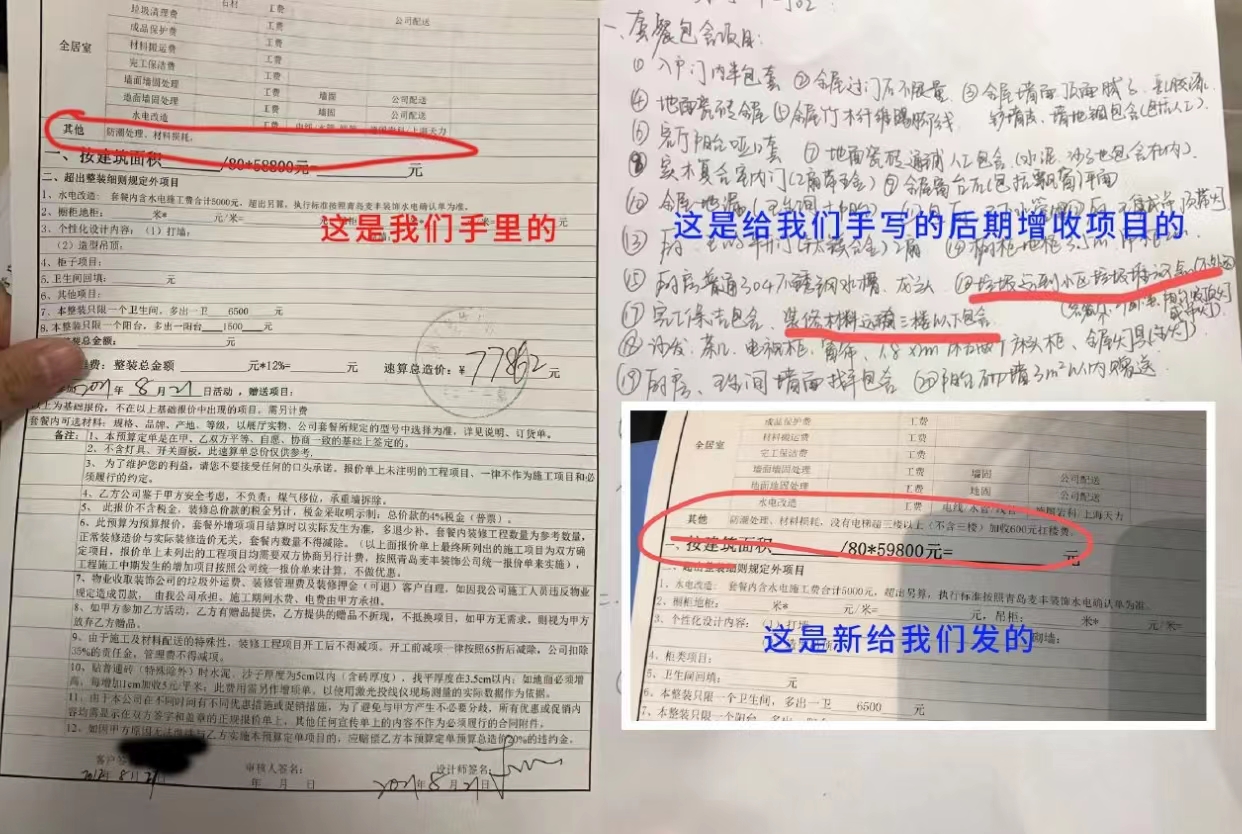 石材 工费
垃圾清理费 工费 公司配送
成品保护费 工费
全居室 材料搬运费 工费
完工保洁费 工费
墙面墙固处理 工费 墙固 公司配送
地面墙固处理 工费 墙固 公司配送
水电改造 工费
其他 防潮处理、材料损耗,
一、按建筑面积______/80*58800元=______元
二、超出整装细则规定外项目
1、水电改造: 套餐内含水电施工费合计5000元, 超出另算, 执行标准按照青岛麦丰装饰水电确认单为准。
2、橱柜地柜: 米* 元/米=
3、个性化设计内容: (1) 打墙:
(2) 造型吊顶:
4、柜子项目:
5.卫生间回填: 元
6、其他项目:
7、本整装只限一个卫生间, 多出一卫 6500 元
8.本整装只限一个阳台, 多出一阳台 1500 元
装总金额: 元
费: 整装总金额 元*12%= 元 速算总造价: ¥ 77862 元
2021年 8月21日活动, 赠送项目:
以上为基础报价, 不在以上基础报价中出现的项目, 需另计费
套餐内可选材料: 规格、品牌、产地、等级, 以展厅实物、公司套餐所规定的型号中选择为准, 详见说明、订货单。
备注: 1、本预算定单是在甲、乙双方平等、自愿、协商一致的基础上签定的。
2、不含灯具、开关面板, 此速算单总价仅供参考.
3、为了维护您的利益, 请您不要接受任何的口头承诺。报价单上未注明的工程项目、一律不作为施工项目和必须履行的约定。
4、乙方公司鉴于甲方安全考虑, 不负责: 煤气移位, 承重墙拆除。
5、此报价不含税金, 装修总价款的税金另计, 税金采取明示制: 总价款的4%税金 (普票) 。
6、此预算为预算报价, 套餐外增项项目结算时以实际发生为准, 多退少补。套餐内装修工程数量为参考数量, 正常装修造价与实际装修造价无关, 套餐内数量不得减除。(以上面报价单上最终所列出的施工项目为双方确定项目, 报价单上未列出的工程项目均需要双方协商另行计费, 按照青岛麦丰装饰公司统一报价单来实施), 工程施工中期发生的增加项目按照公司统一报价单来计算, 不做优惠。
7、物业收取装饰公司的垃圾外运费、装修管理费及装修押金 (可退) 客户自理, 如因我公司施工人员违反物业规定造成罚款, 由我公司承担, 施工期间水费、电费由甲方承担。
8、如甲方参加乙方活动, 乙方有赠品提供, 乙方提供的赠品不折现, 不抵换项目, 如甲方无需求, 则视为甲方放弃乙方赠品。
9、由于施工及材料配送的特殊性, 装修工程项目开工后不得减项。开工前减项一律按照65折后减除, 公司扣除35%的责任金, 管理费不得减项。
10、贴普通砖 (特殊除外) 时水泥、沙子厚度为5cm以内 (含砖厚度), 找平厚度在3.5cm以内; 如地面必须增高, 每增加1cm加收5元/平米; 此费用需另作增项单, 以使用激光投线仪现场测量的实际数据作为依据。
11、由于本公司在不同时间有不同优惠措施或促销措施, 为了避免与甲方产生不必要分歧, 所有优惠或促销内容均需显示在双方签字和盖章的正规报价单上, 其他任何宣传单上的内容不作为必须履行的合同附件。
12、如因甲方原因 与乙方实施本预算定单项目的, 应赔偿乙方本预算定单预算总造价20%的违约金。
客户签 审核人签名: 设计师签名:
8月21 年 月 日 2021年8月21日
这是我们手里的
一、套餐包含项目:
① 入户门内半包套 ② 全屋过门石不限量 ③ 全屋墙面顶面腻子、乳胶漆
④ 地面瓷砖全屋 ⑤ 全屋竹木纤维踢脚线
⑥ 客厅阳台哑口套 ⑦ 地面瓷砖通铺人工包含 (水泥、沙子也包含在内).
实木复合室内门 ⑨ 全屋窗台石 (包括飘窗) 平面
⑩ 全屋地漏
⑬ 厨、 2扇 ⑭ 橱柜地柜
⑮ 厨房普通304不锈钢水槽、龙头 垃圾运到小区垃圾堆放点
⑰ 完工保洁包含、装修材料运输三楼以下包含
⑱ 沙发、茶几、电视柜、窗帘、1.8×2m 床头柜、全屋灯具
⑲ 厨房、卫生间墙面找平包含 ⑳ 阳台砌墙3m²以内赠送
这是给我们手写的后期增收项目的
成品保护费 工费
全居室 材料搬运费 工费
完工保洁费 工费
墙面墙固处理 工费 墙固 公司配送
地面墙固处理 工费 地固 公司配送
水电改造 工费
其他 防潮处理、材料损耗, 没有电梯超三楼以上 (不含三楼) 加收600元扛楼费。
一、按建筑面积______/80*59800元=______元
二、超出整装细则规定外项目
1、水电改造: 套餐内含水电施工费合计5000元, 超出另算, 执行标准按照青岛麦丰装饰水电确认单为准。
2、橱柜地柜: 米* 元/米= 元, 吊柜: 米* 元/米=
3、个性化设计内容: (1) 打墙: 砌墙:
4、柜类项目:
5、卫生间回填: 元
6、本整装只限一个卫生间, 多出一卫 6500 元
7、本整装只限一个阳台,
这是新给我们发的